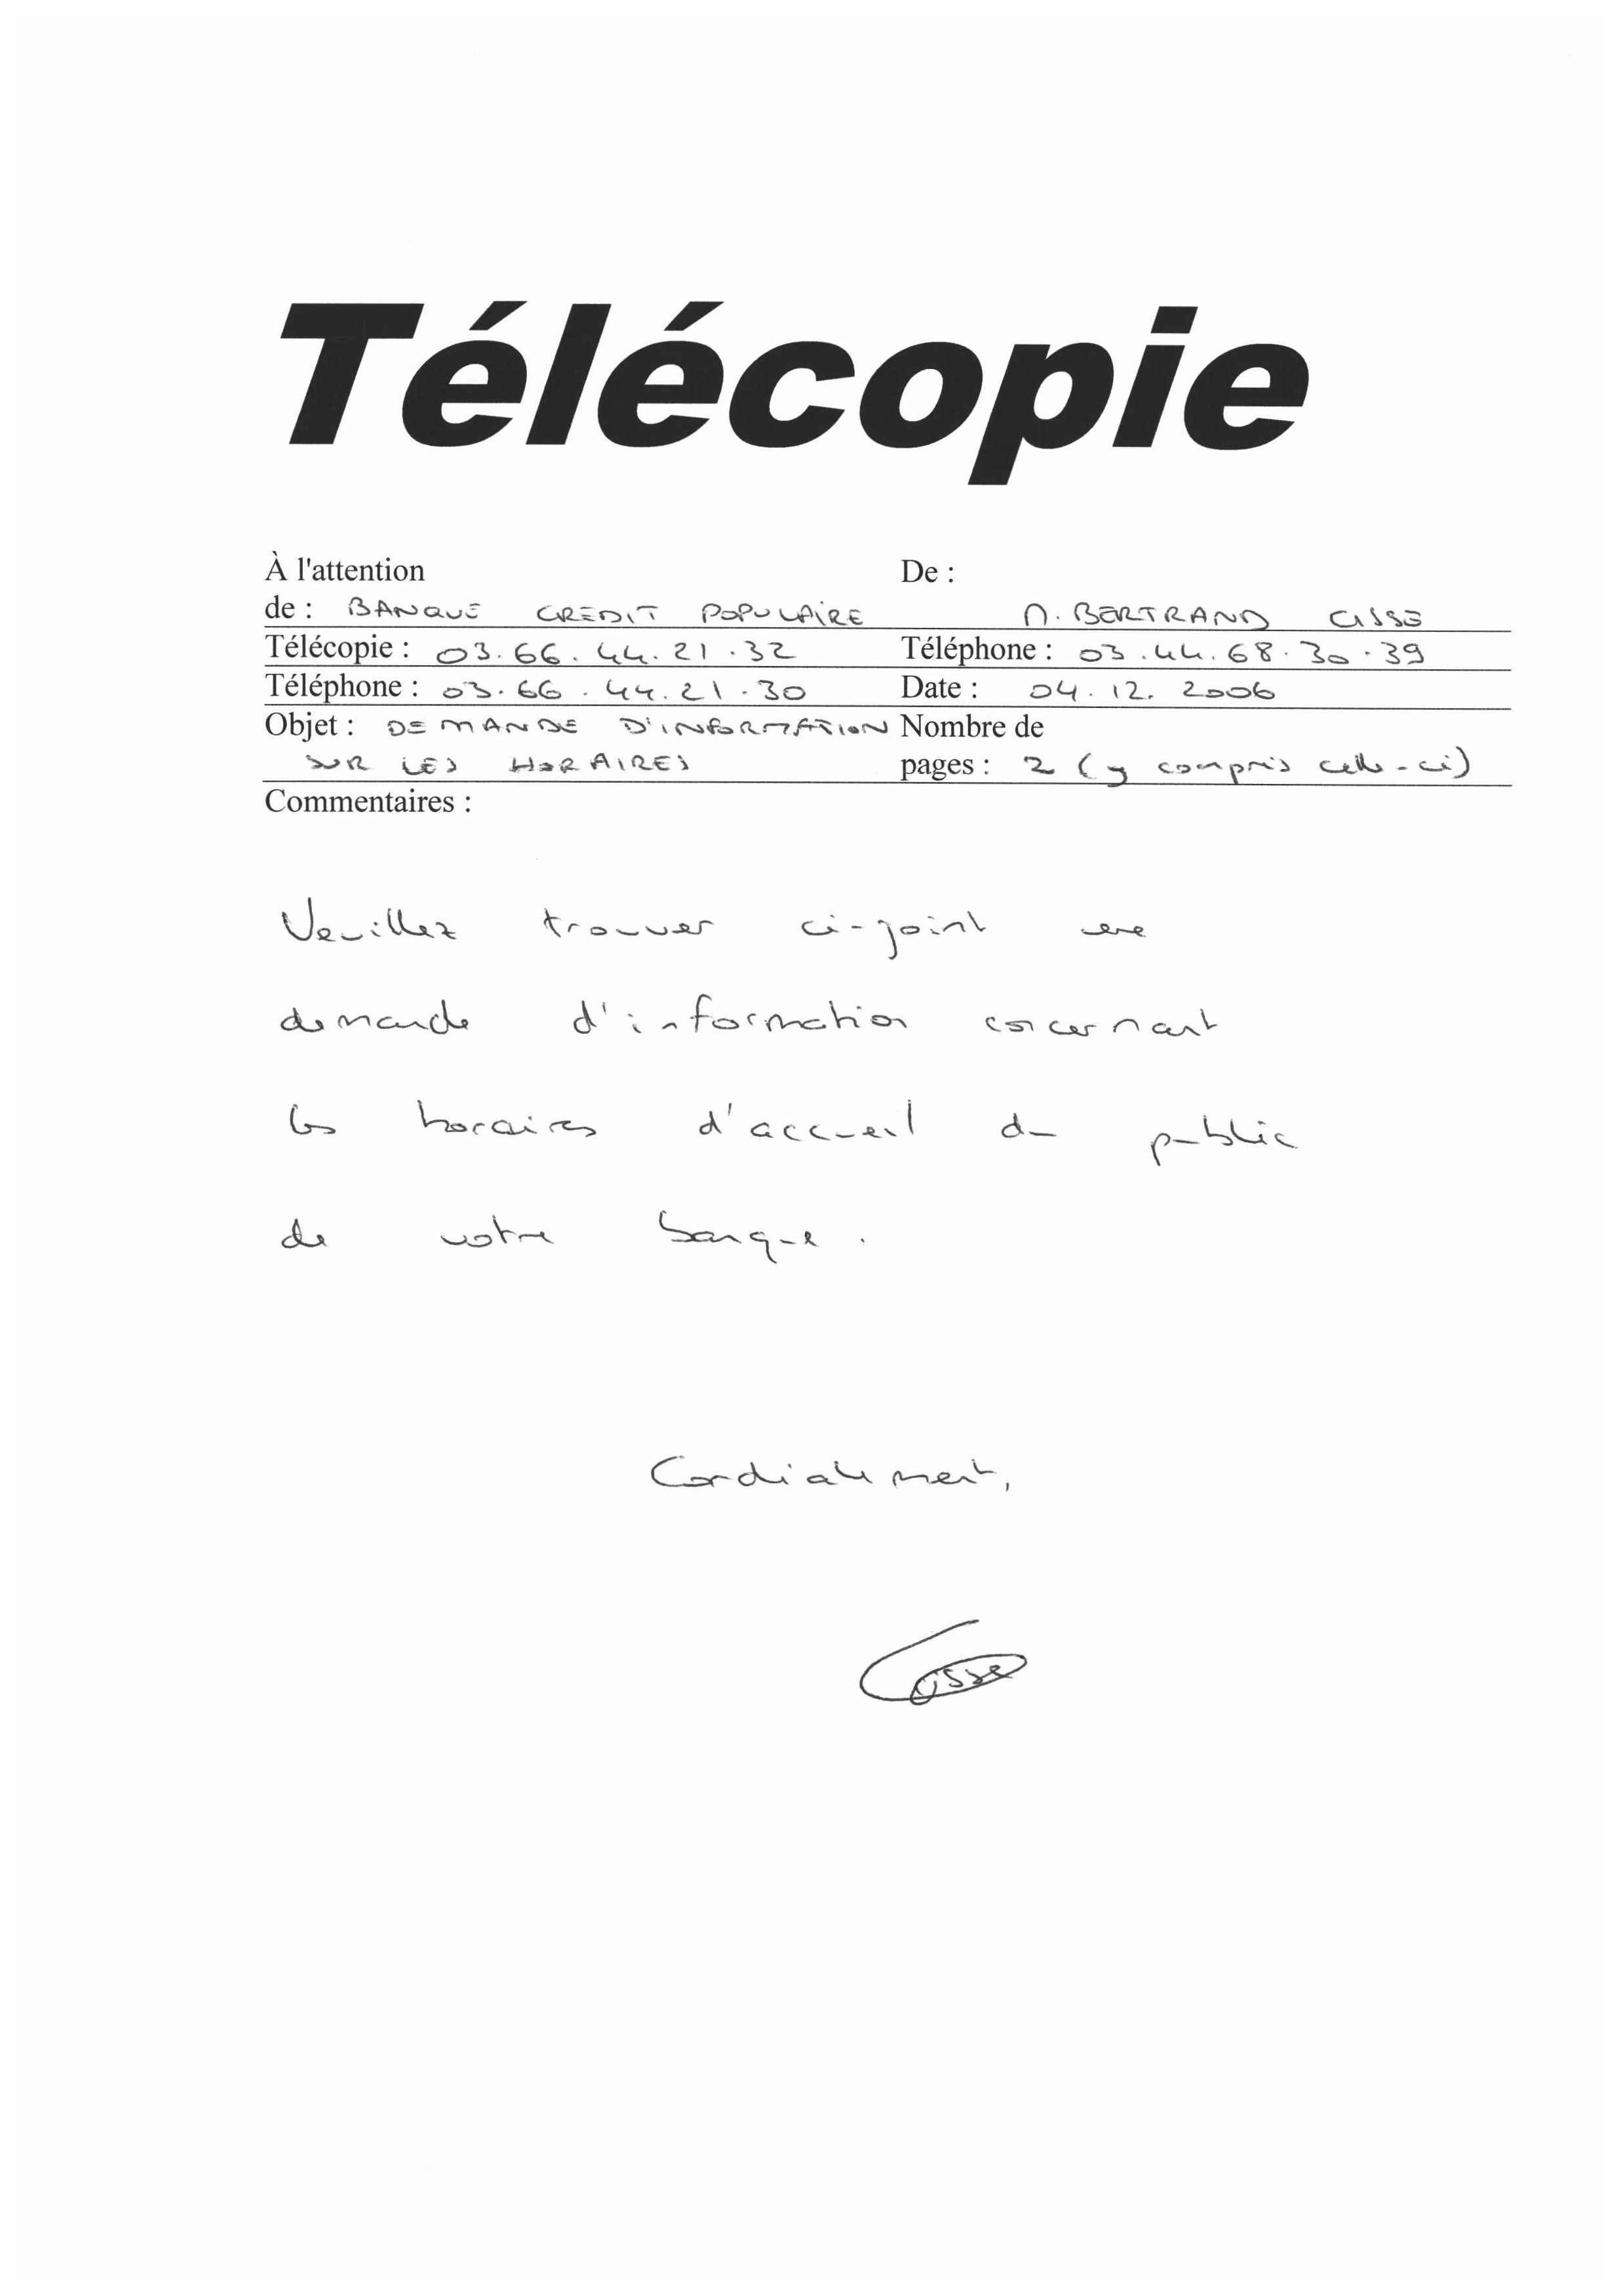 Télécopie
À l'attention De :
de : BANQUE CREDIT POPULAIRE M. BERTRAND CISSE
Télécopie : 03.66.44.21.32 Téléphone : 03.44.68.30.39
Téléphone : 03.66.44.21.30 Date : 04.12.2006
Objet : DEMANDE D'INFORMATION Nombre de
SUR LES HORAIRES pages : 2 (y compris celle-ci)
Commentaires :
Veuillez trouver ci-joint une
demande d'information concernant
les horaires d'accueil du public
de votre banque.
Cordialement,
Cisse